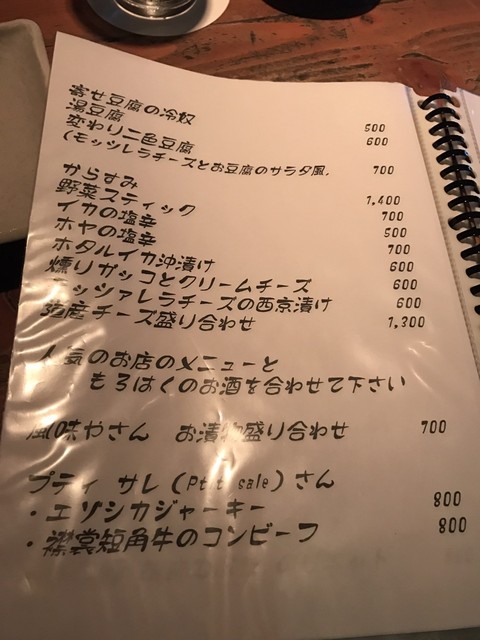 寄せ豆腐の冷奴 500
湯豆腐 600
変わり二色豆腐
(モッツレラチーズとお豆腐のサラダ風, 700
からすみ 1,400
野菜スティック 700
イカの塩辛 500
ホヤの塩辛 700
ホタルイカ沖漬け 600
燻りガッコとクリームチーズ 600
モッツァレラチーズの西京漬け 600
道産チーズ盛り合わせ 1,300
人気のお店のメニューと
もろはくのお酒を合わせて下さい
風味やさん お漬物盛り合わせ 700
プティ サレ (Ptit sale) さん
・エゾシカジャーキー 800
・襟裳短角牛のコンビーフ 800